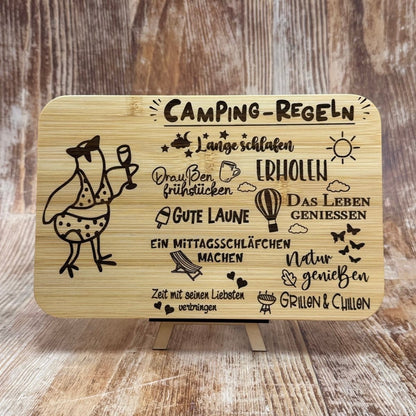 CAMPING-REGELN
Lange schlafen
Draußen
frühstücken
ERHOLEN
GUTE LAUNE
DAS LEBEN
GENIESSEN
EIN MITTAGSSCHLÄFCHEN
MACHEN
Natur
genießen
Zeit mit seinen Liebsten
verbringen
GRILLEN & CHILLEN